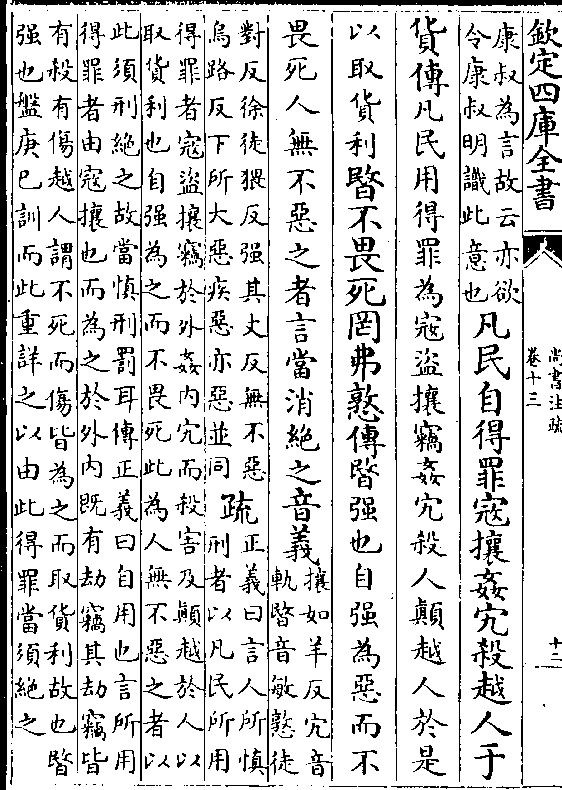 欽定四庫全書
尚書注疏
卷十三
十二
康叔為言故云亦欲
令康叔明識此意也
凡民自得罪寇攘姦宄殺越人于
貨傳凡民用得罪為寇盜攘竊姦宄殺人顛越人於是
以取貨利暋不畏死罔弗憝傳暋强也自强為惡而不
畏死人無不惡之者言當消絶之音義
攘如羊反宄音
軌暋音敏憝徒
對反徐徒猥反强其丈反無不惡
烏路反下所大惡疾惡亦惡並同
疏
正義曰言人所慎
刑者以凡民所用
得罪者寇盜攘竊於外姦内宄而殺害及顛越於人以
取貨利也自强為之而不畏死此為人無不惡之者以
此須刑絶之故當慎刑罰耳傳正義曰自用也言所用
得罪者由寇攘也而為之於外内既有劫竊其劫竊皆
有殺有傷越人謂不死而傷皆為之而取貨利故也暋
强也盤庚已訓而此重詳之以由此得罪當須絶之